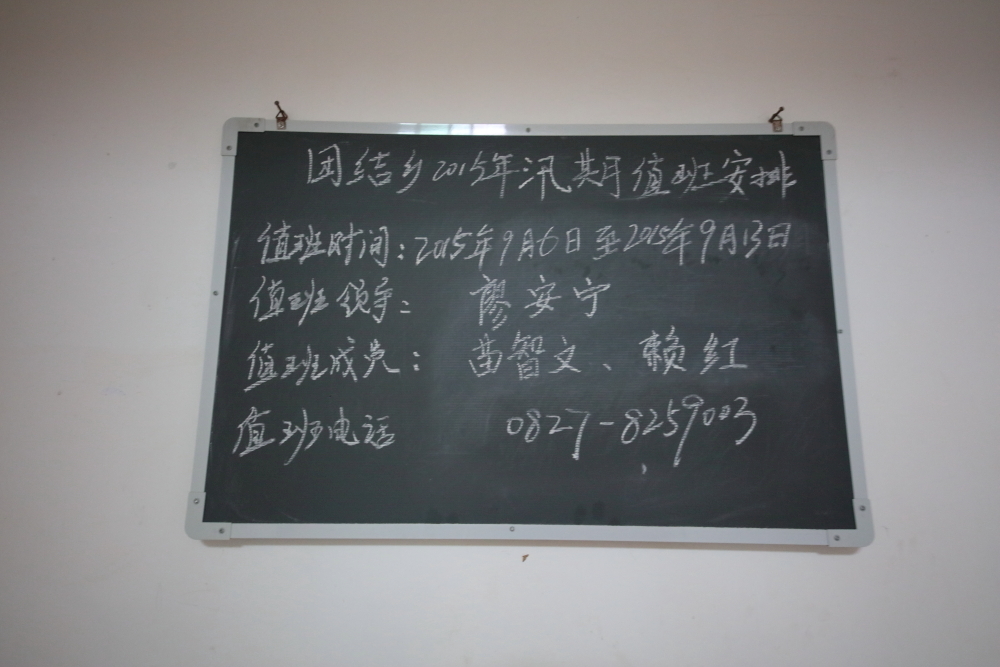 团结乡2015年汛期值班安排
值班时间：2015年9月6日至2015年9月13日
值班领导：廖安宁
值班成员：苗智文、赖红
值班电话 0827-8259003